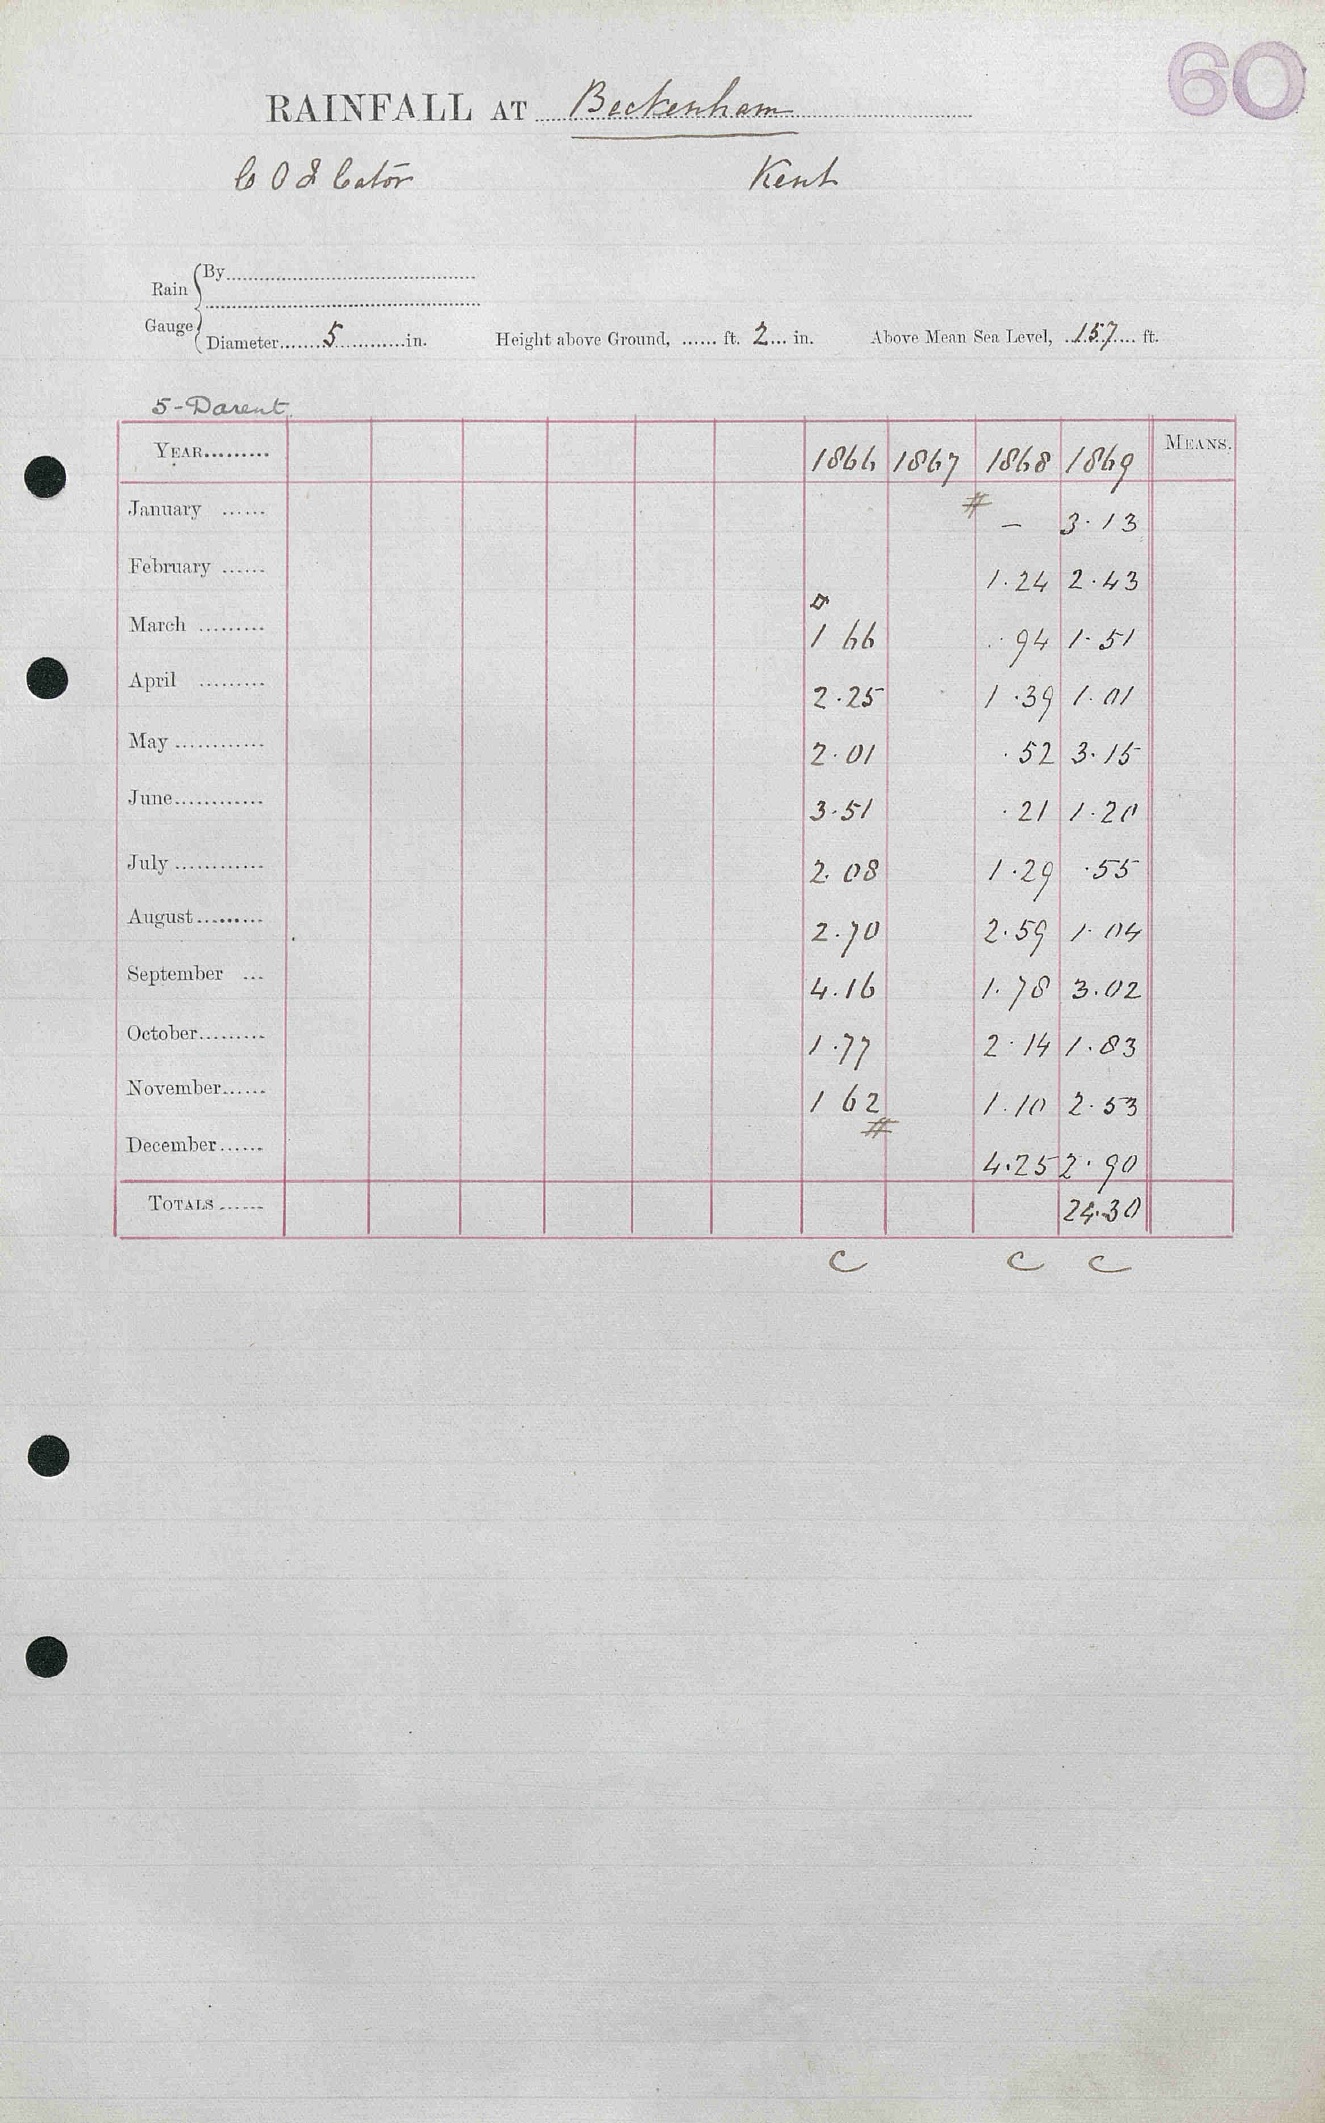 60
RAINFALL AT Beckenham
C O F Cator Kent
Rain Gauge By
Diameter 5 in. Height above Ground, ft. 2 in. Above Mean Sea Level, 157 ft.
5-Darent
YEAR 1866 1867 1868 1869 MEANS.
January # – 3.13
February 1.24 2.43
March 1 66 .94 1.51
April 2.25 1.39 1.01
May 2.01 .52 3.15
June 3.51 .21 1.20
July 2.08 1.29 .55
August 2.70 2.59 1.04
September 4.16 1.78 3.02
October 1.77 2.14 1.83
November 1 62 1.10 2.53
December # 4.25 2.90
TOTALS 24.30
C C C